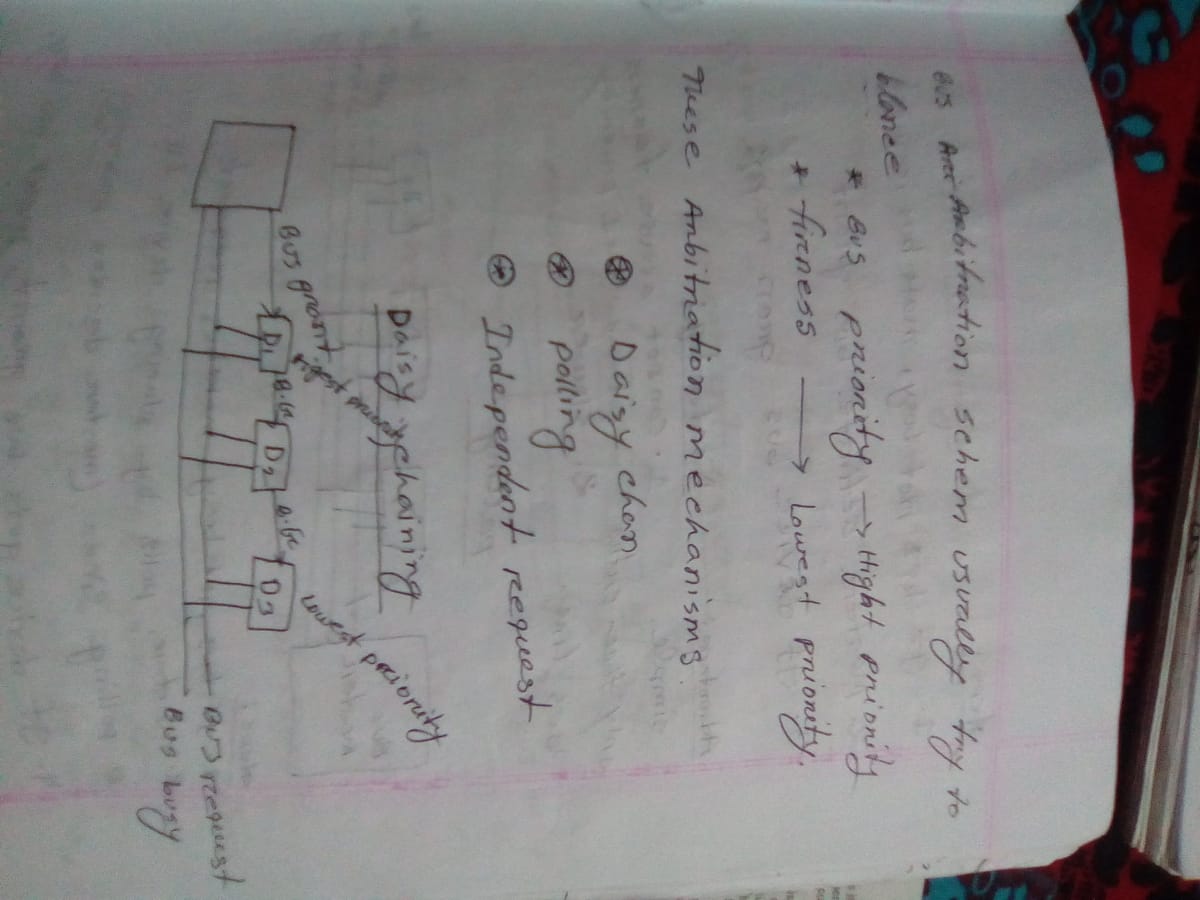 BUS Arbitration schem usually try to
blance
* BUS priority → Hight priority
* firness → Lowest priority.
These Arbitration mechanisms.
⊛ Daisy chan
⊛ polling
⊛ Independent request
Daisy chaining
Bus grant
Higest priority
Lowest priority
D1 B.G D2 B.G D3
BUS request
Bus busy